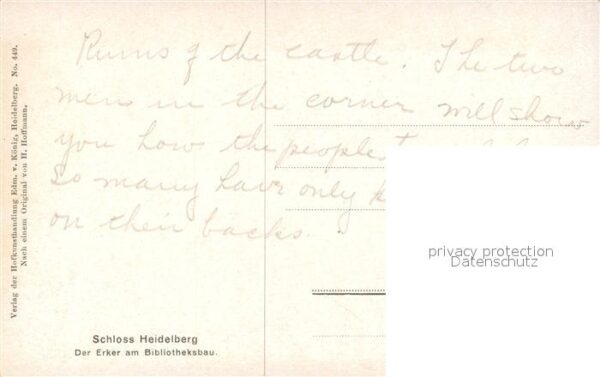 Ruins of the castle. The two
men in the corner will show
you how the peoples
So many have only
on their backs.
privacy protection
Datenschutz
Schloss Heidelberg
Der Erker am Bibliotheksbau.
Verlag der Hofkunsthandlung Edm. v. König, Heidelberg. No. 449.
Nach einem Original von H. Hoffmann.